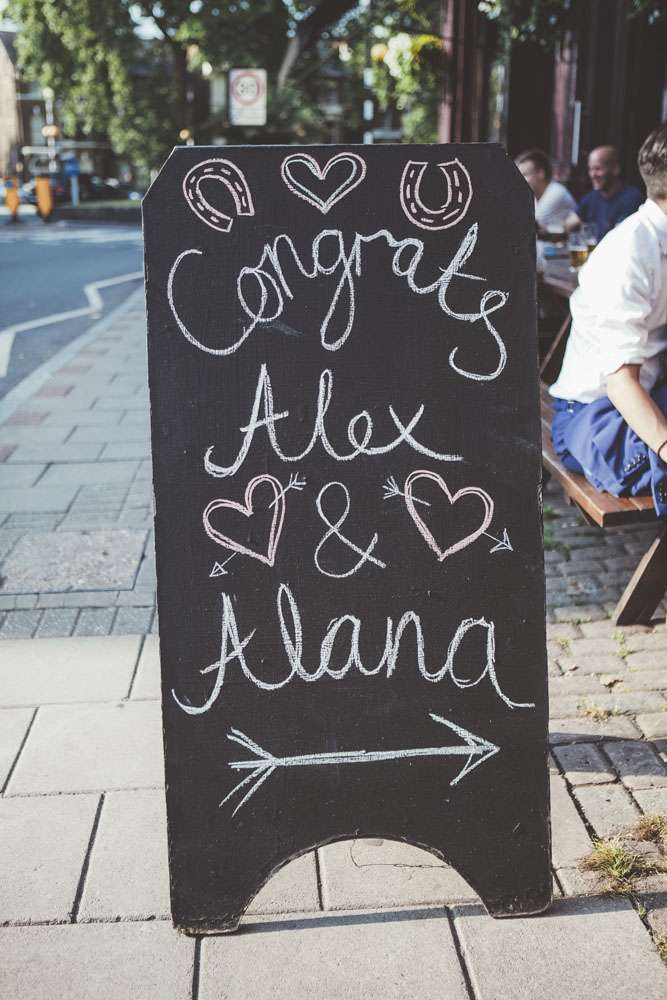 Congrats
Alex
&
Alana